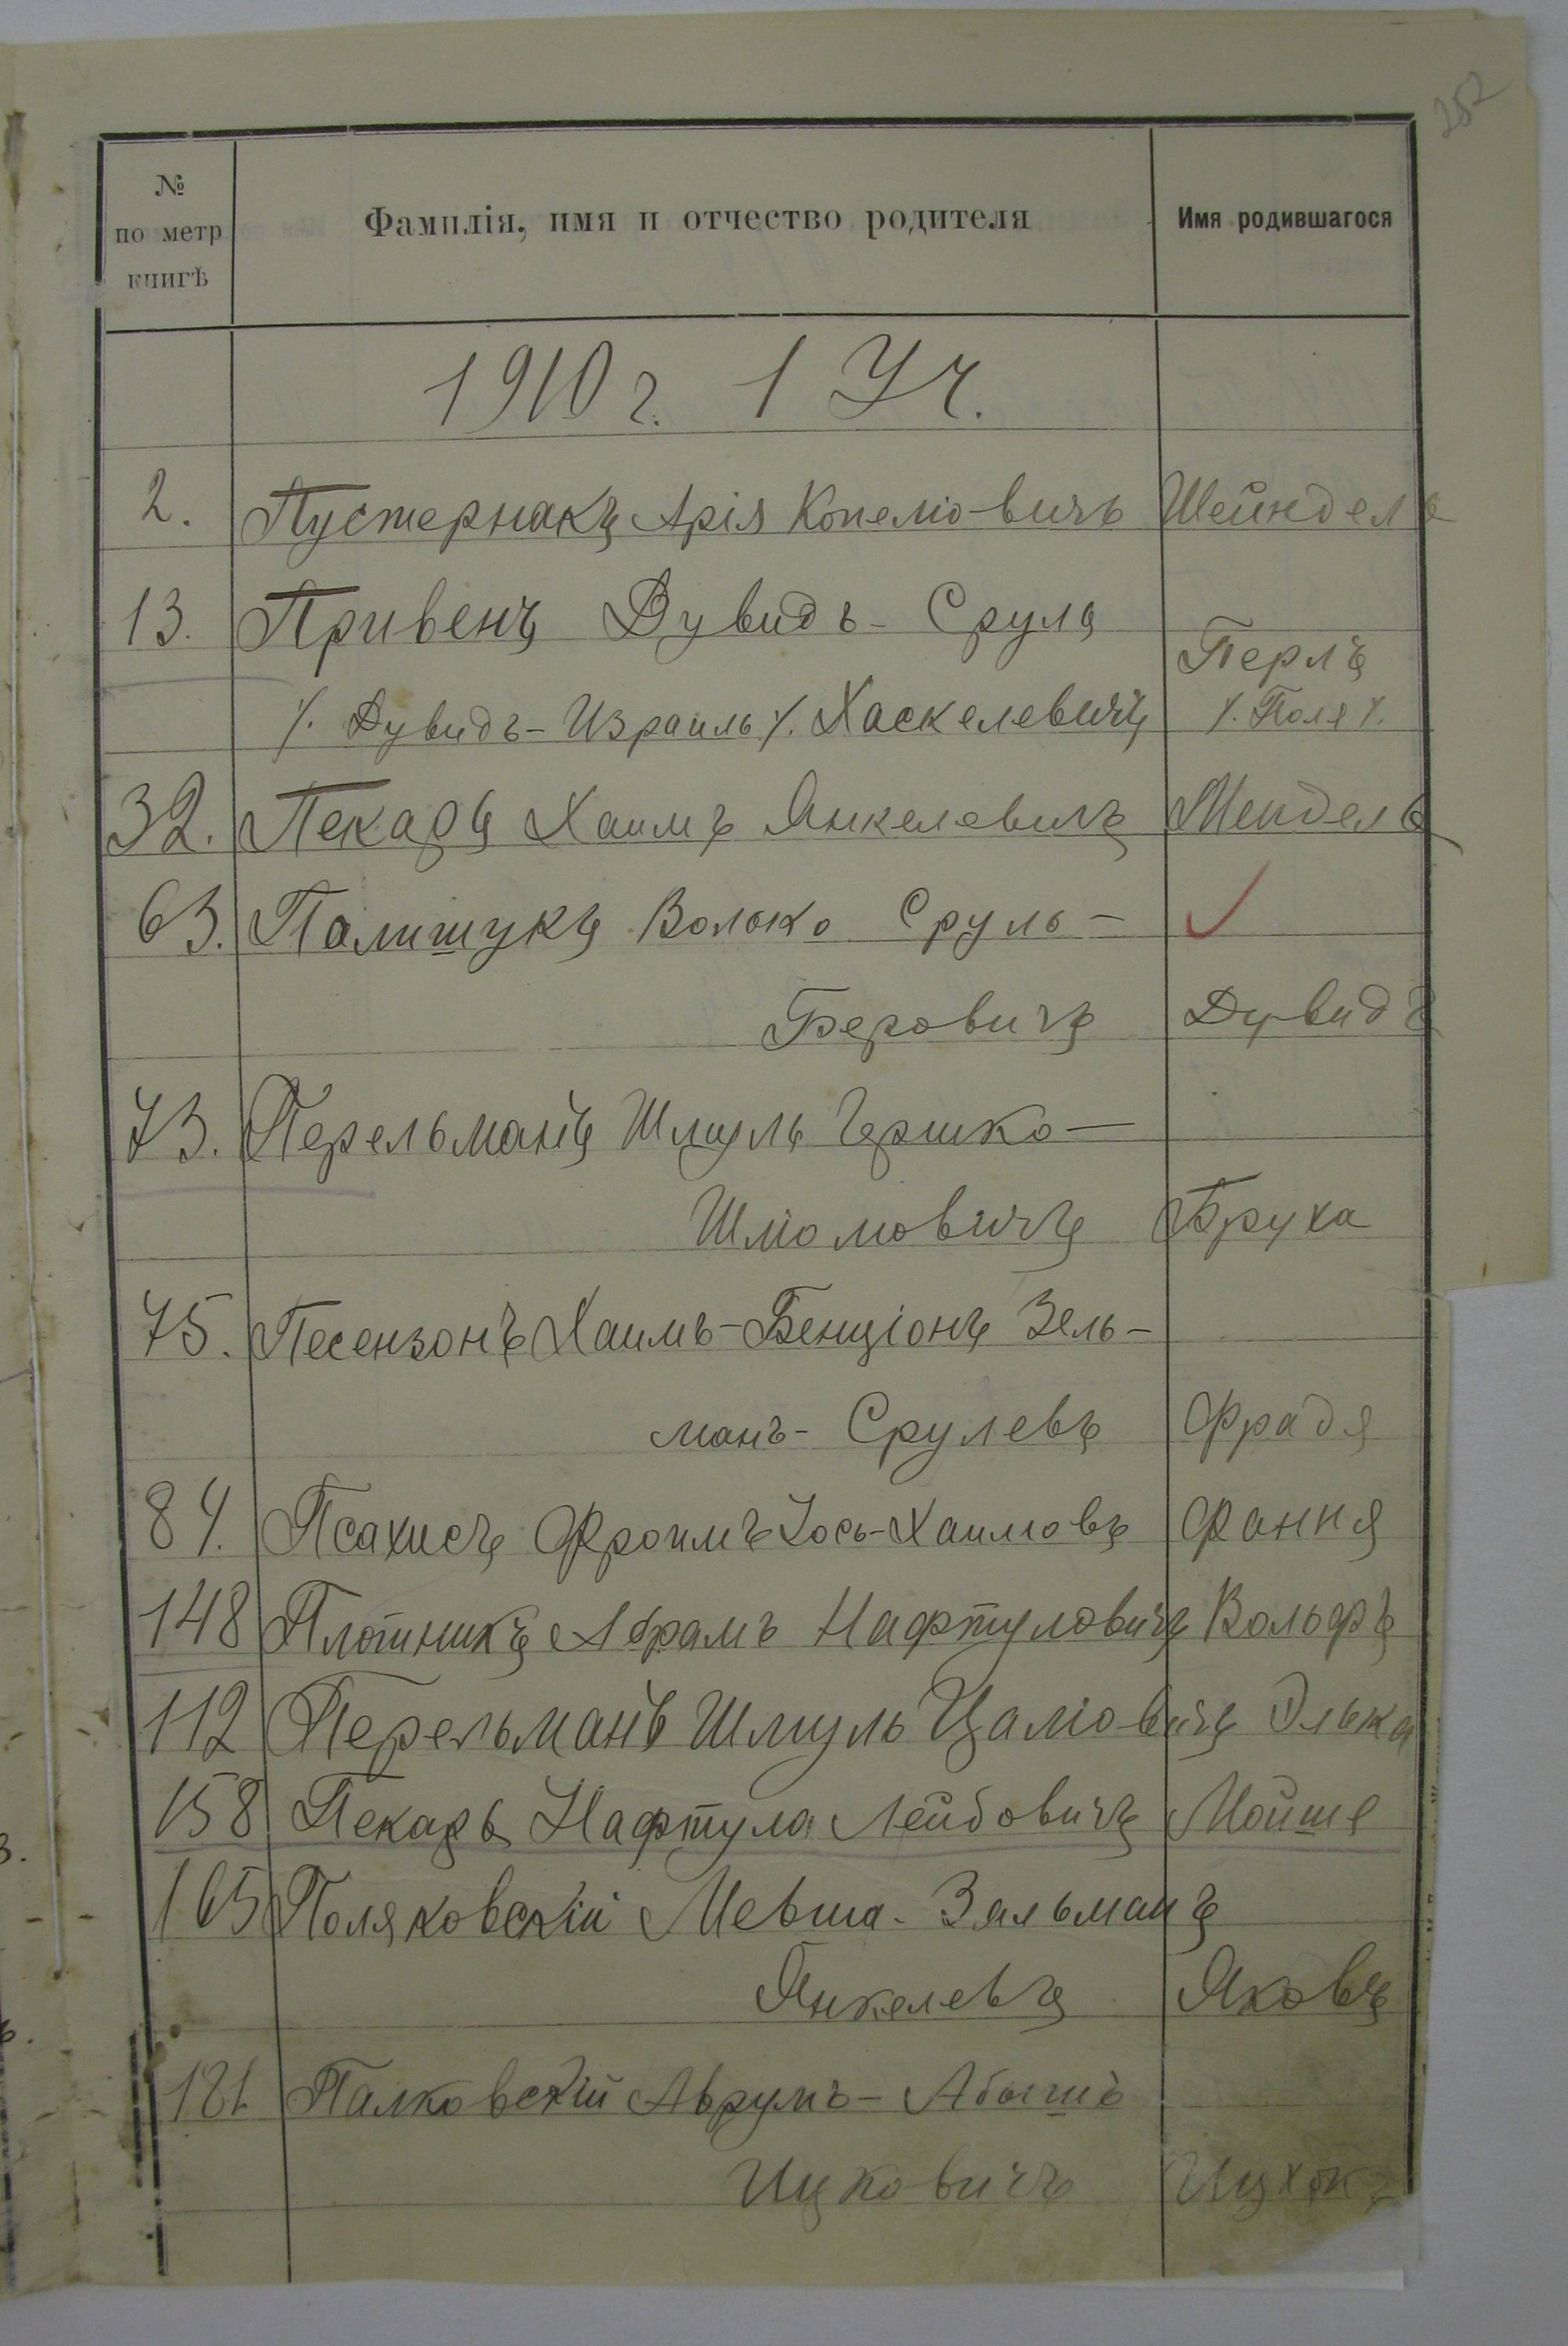 252
№ по метр книгѣ | Фамилія, имя и отчество родителя | Имя родившагося
1910 г. 1 Уч.
2. Пустернакъ Арія Копеліовичъ Шейндель
13. Привенъ Дувидъ-Сруль
Перль
/. Дувидъ-Израиль /. Хаскелевичъ /. Поля /.
32. Пекарь Хаимъ Янкелевичъ Мендель
63. Полишукъ Волько Сруль-
Беровичъ Дувидъ
73. Перельманъ Шмуль Гершко-
Шліомовичъ Бруха
75. Песензонъ Хаимъ-Бенціонъ Зель-
манъ-Срулевъ Фрадя
84. Псахисъ Фроимъ Іось-Хаимовъ Фання
148 Плотникъ Абрамъ Нафтуловичъ Вольфъ
112 Перельманъ Шмуль Цаліовичъ Элька
158 Пекарь Нафтула Лейбовичъ Мойше
165 Поляковскій Мевша-Зельманъ
Янкелевъ Яковъ
181 Палковскій Аврумъ-Абышъ
Ицковичъ Ицхокъ